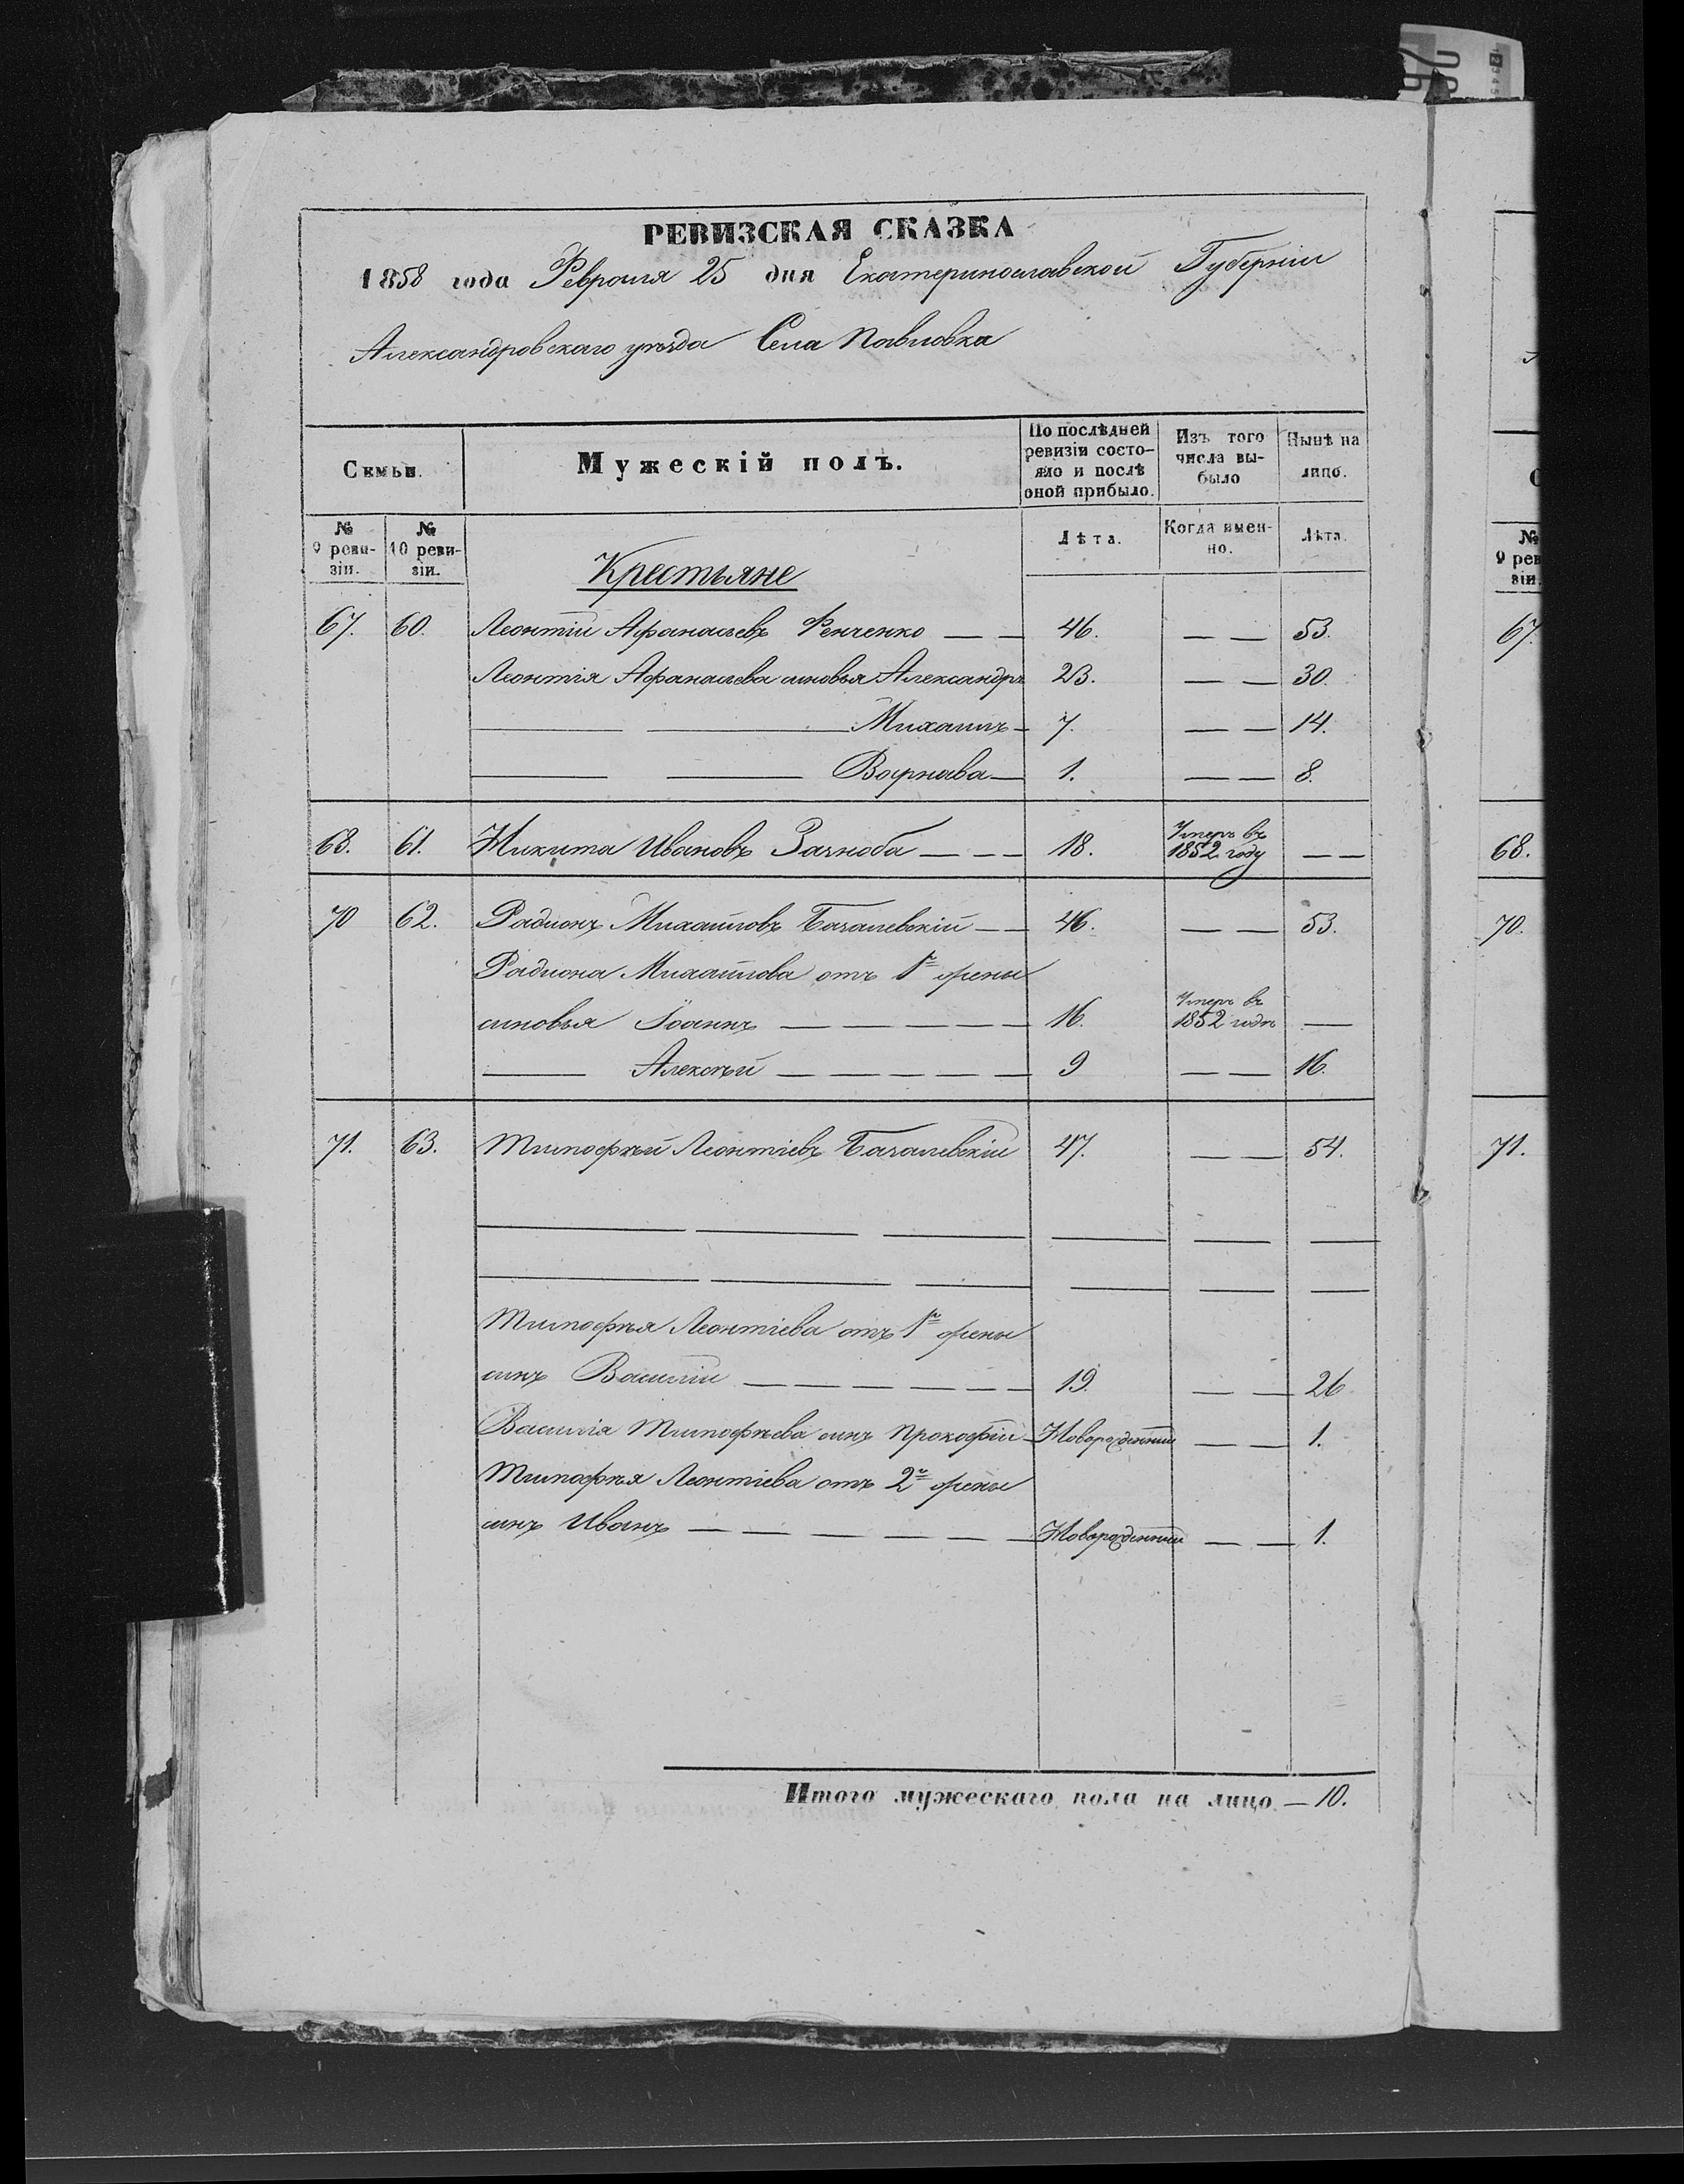 РЕВИЗСКАЯ СКАЗКА
1858 года Февраля 25 дня Екатеринославской Губерніи
Александровскаго уѣзда Села Павловка
Семьи. Мужескій полъ. По послѣдней ревизіи состояло и послѣ оной прибыло. Изъ того числа выбыло Нынѣ на лицо.
№ 9 ревизіи. № 10 ревизіи. Лѣта. Когда именно. Лѣта.
Крестьяне
67. 60. Леонтій Афанасьевъ Ренченко — — 46. — — 53.
Леонтія Афанасьева сыновья Александръ 23. — — 30.
Михаилъ — 7. — — 14.
Варнава — 1. — — 8.
68. 61. Никита Ивановъ — — — 18. Умеръ въ 1852 году — —
70 62. Радионъ Михайловъ Бачалевскій — — 46. — — 53.
Радиона Михайлова отъ 1й жены
сыновья Іоаннъ — — — — — 16. Умеръ въ 1852 годъ —
— Алексѣй — — — — — 9 — — 16.
71. 63. Тимофѣй Леонтіевъ Бачалевскій 47. — — 54.
Тимофѣя Леонтіева отъ 1й жены
сынъ Василій — — — — — — 19. — — 26
Василія Тимофѣева сынъ Прокофій — Новорожденный — — 1.
Тимофѣя Леонтіева отъ 2й жены
сынъ Иванъ — — — — — — Новорожденный — — 1.
Итого мужескаго пола на лицо — 10.
№
9 рев
зіи.
67.
68.
70.
71.